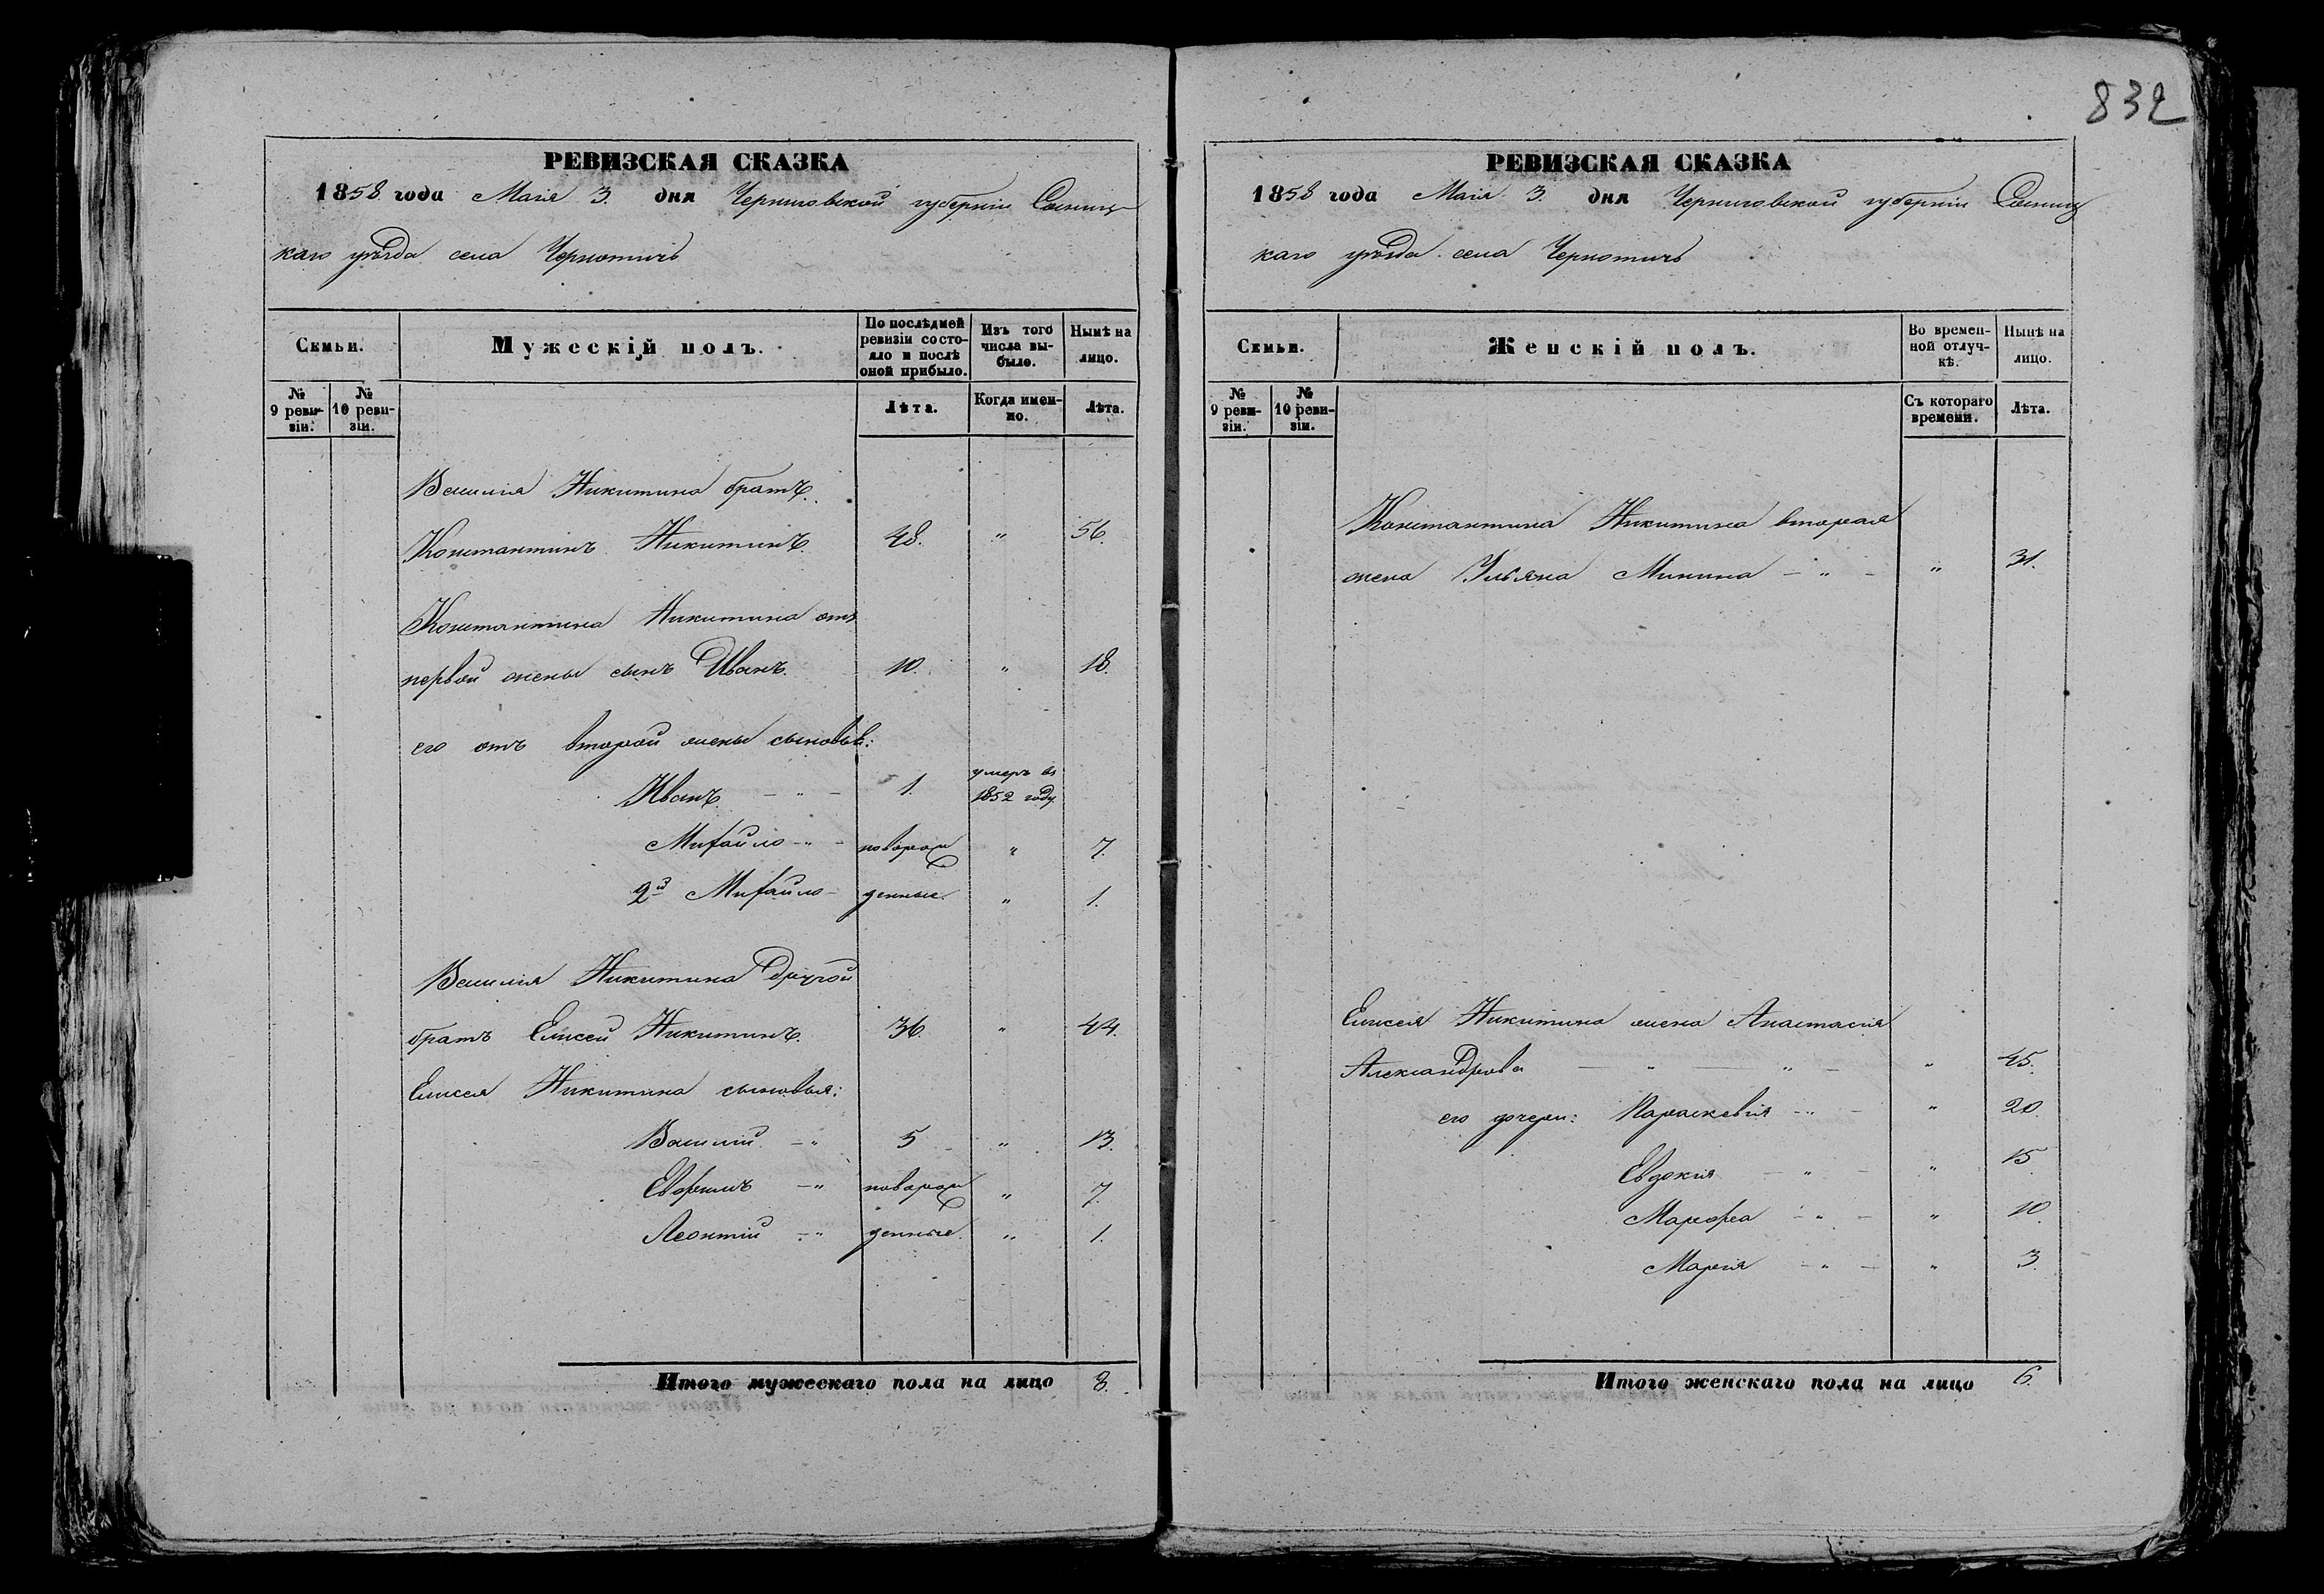 832
РЕВИЗСКАЯ СКАЗКА
1858 года Маія 3. дня Черниговской губерніи Сосниц
каго уѣзда села Чернотичь
Семьи.
Мужескій полъ.
По послѣдней ревизіи состояло и послѣ оной прибыло.
Изъ того числа выбыло.
Нынѣ на лицо.
№ 9 ревизіи.
№ 10 ревизіи.
Лѣта.
Когда именно.
Лѣта.
Василія Никитина братъ
Константинъ Никитинъ. 48. " 56.
Константина Никитина отъ
первой жены сынъ Иванъ. 10. " 18.
его отъ второй жены сыновья:
Иванъ - " - 1. умеръ въ 1852 году.
Михайло - " - новорож " 7.
2й Михайло - денные. " 1.
Василія Никитина другой
братъ Елисей Никитинъ. 36. " 44.
Елисея Никитина сыновья:
Василій - " 5 " 13.
Евфимъ - " новорож " 7.
Леонтій - " денные. " 1.
Итого мужескаго пола на лицо 8.
РЕВИЗСКАЯ СКАЗКА
1858 года Маія 3. дня Черниговской губерніи Сосниц
каго уѣзда села Чернотичь
Семьи.
Женскій полъ.
Во временной отлучкѣ.
Нынѣ на лицо.
№ 9 ревизіи.
№ 10 ревизіи.
Съ котораго времени.
Лѣта.
Константина Никитина вторая
жена Ульяна Минина - " - " 31.
Елисея Никитина жена Анастасія
Александрова - " - " - " 45.
его дочери: Параскевія - " - " 20.
Евдокія - " - " 15
Марфа - " - " 10
Марія - " - " 3.
Итого женскаго пола на лицо 6.